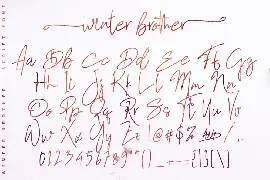 winter brother
Aa Bb Cc Dd Ee Ff Gg
Hh Ii Jj Kk Ll Mm Nn
Oo Pp Qq Rr Ss Tt Uu Vv
Ww Xx Yy Zz ! @ # $ %
0123456789
WINTER BROTHER
SCRIPT FONT